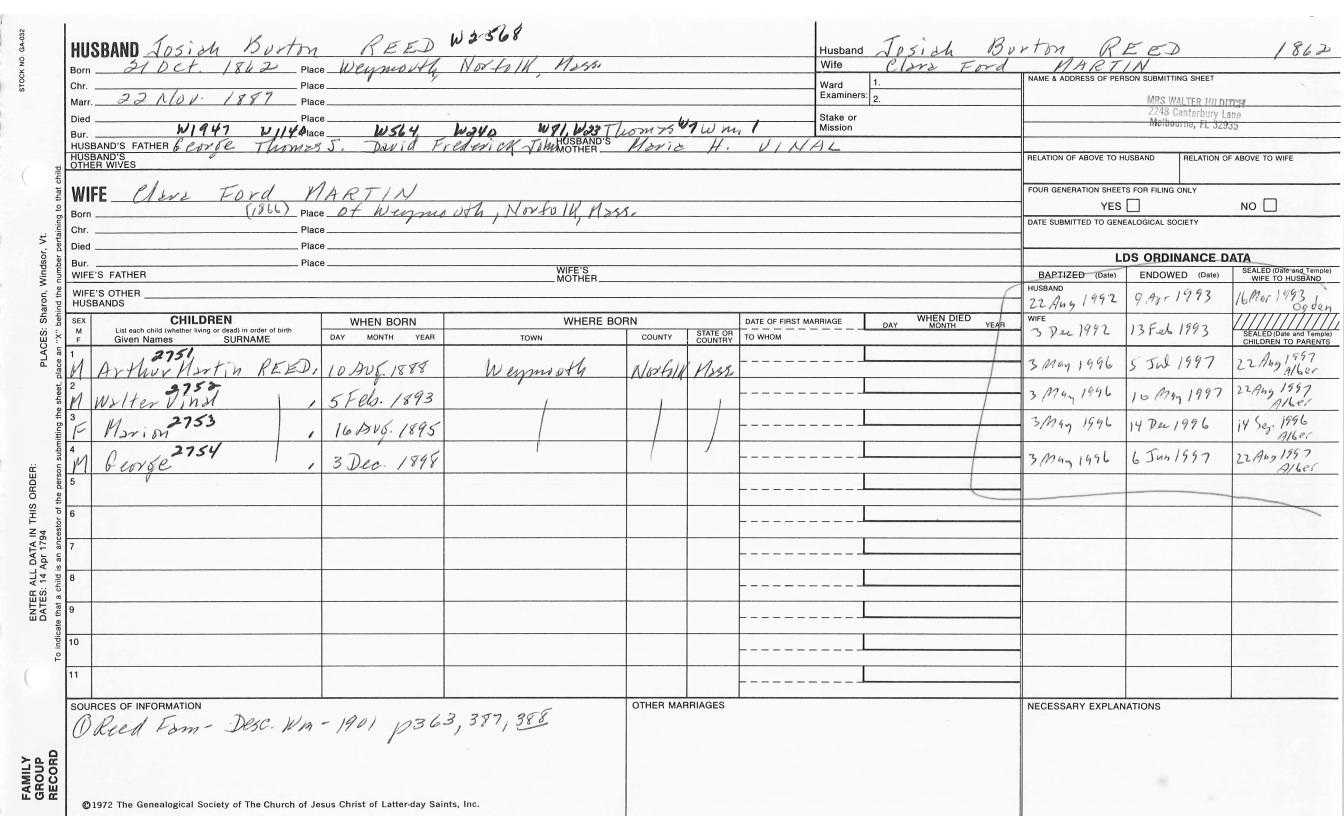 STOCK NO. GA-032
HUSBAND Josiah Burton REED W2568
Born 21 Oct. 1862 Place Weymouth, Norfolk, Mass.
Chr. Place
Marr. 22 Nov. 1887 Place
Died Place
Bur. W1947 W1140 Place W564 W240 W71, W23 Thomas W7 Wm. 1
HUSBAND'S FATHER George Thomas J. David Frederick John HUSBAND'S MOTHER Maria H. VINAL
HUSBAND'S OTHER WIVES
WIFE Clara Ford MARTIN
Born (1866) Place of Weymouth, Norfolk, Mass.
Chr. Place
Died Place
Bur. Place
WIFE'S FATHER WIFE'S MOTHER
WIFE'S OTHER HUSBANDS
Husband Josiah Burton REED 1862
Wife Clara Ford MARTIN
Ward Examiners: 1.
2.
Stake or Mission
NAME & ADDRESS OF PERSON SUBMITTING SHEET
MRS WALTER HILDITCH
2248 Canterbury Lane
Melbourne, FL 32935
RELATION OF ABOVE TO HUSBAND RELATION OF ABOVE TO WIFE
FOUR GENERATION SHEETS FOR FILING ONLY
YES NO
DATE SUBMITTED TO GENEALOGICAL SOCIETY
LDS ORDINANCE DATA
BAPTIZED (Date) ENDOWED (Date) SEALED (Date and Temple) WIFE TO HUSBAND
HUSBAND 22 Aug 1992 9 Apr 1993 16 Mar 1993 Ogden
WIFE 3 Dec 1992 13 Feb 1993
SEALED (Date and Temple) CHILDREN TO PARENTS
SEX M F CHILDREN WHEN BORN WHERE BORN DATE OF FIRST MARRIAGE WHEN DIED
List each child (whether living or dead) in order of birth
Given Names SURNAME DAY MONTH YEAR TOWN COUNTY STATE OR COUNTRY TO WHOM DAY MONTH YEAR
1 M 2751 Arthur Martin REED, 10 Aug. 1888 Weymouth Norfolk Mass 3 May 1996 5 Jul 1997 22 Aug 1997 Alber
2 M 2752 Walter Vinal , 5 Feb. 1893 3 May 1996 10 May 1997 22 Aug 1997 Alber
3 F 2753 Marion , 16 Aug. 1895 3 May 1996 14 Dec 1996 14 Sep. 1996 Alber
4 M 2754 George , 3 Dec. 1898 3 May 1996 6 Jun 1997 22 Aug 1997 Alber
5
6
7
8
9
10
11
SOURCES OF INFORMATION
① Reed Fam - Desc. Wm - 1901 p363, 387, 388
OTHER MARRIAGES
NECESSARY EXPLANATIONS
©1972 The Genealogical Society of The Church of Jesus Christ of Latter-day Saints, Inc.
FAMILY GROUP RECORD
ENTER ALL DATA IN THIS ORDER:
DATES: 14 Apr 1794 PLACES: Sharon, Windsor, Vt.
To indicate that a child is an ancestor of the person submitting the sheet, place an "X" behind the number pertaining to that child.